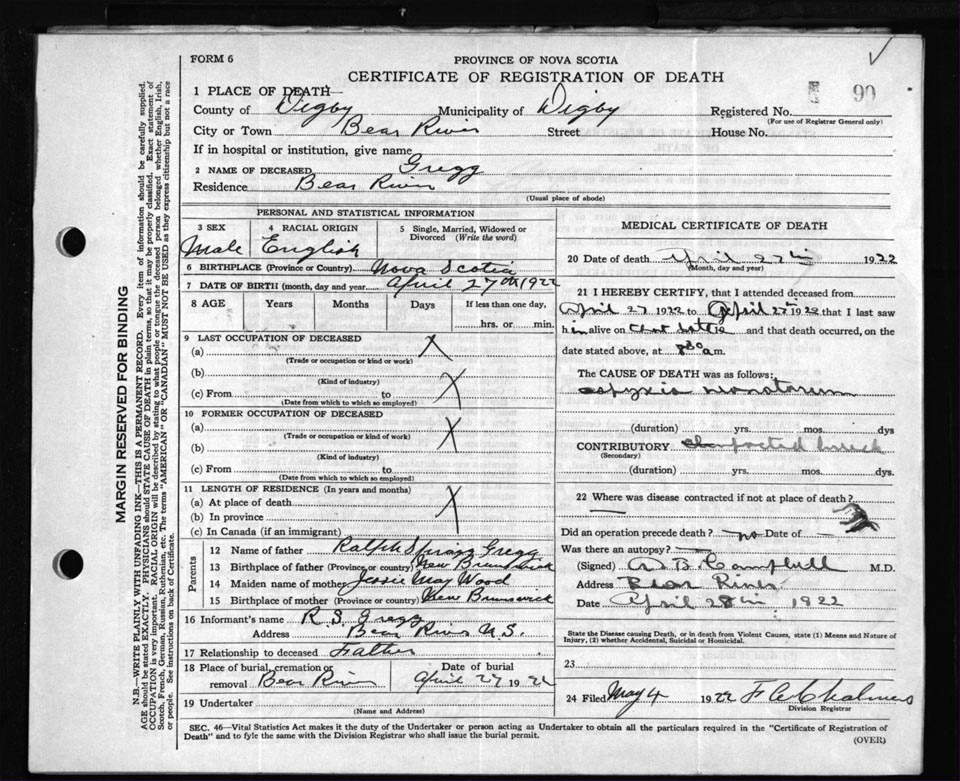 FORM 6
PROVINCE OF NOVA SCOTIA
CERTIFICATE OF REGISTRATION OF DEATH
1 PLACE OF DEATH—
County of Digby Municipality of Digby Registered No. 90
(For use of Registrar General only)
City or Town Bear River Street House No.
If in hospital or institution, give name
2 NAME OF DECEASED Gregg
Residence Bear River
(Usual place of abode)
PERSONAL AND STATISTICAL INFORMATION
3 SEX 4 RACIAL ORIGIN 5 Single, Married, Widowed or
Divorced (Write the word)
Male English
6 BIRTHPLACE (Province or Country) Nova Scotia
7 DATE OF BIRTH (month, day and year) April 27th 1922
8 AGE Years Months Days If less than one day,
hrs. or min.
9 LAST OCCUPATION OF DECEASED
(a) X
(Trade or occupation or kind or work)
(b)
(Kind of industry)
(c) From to X
(Date from which to which so employed)
10 FORMER OCCUPATION OF DECEASED
(a) X
(Trade or occupation or kind of work)
(b)
(Kind of industry)
(c) From to
(Date from which to which so employed)
11 LENGTH OF RESIDENCE (In years and months)
(a) At place of death X
(b) In province
(c) In Canada (if an immigrant)
Parents
12 Name of father Ralph Gregg
13 Birthplace of father (Province or country) New Brunswick
14 Maiden name of mother Jessie May Wood
15 Birthplace of mother (Province or country) New Brunswick
16 Informant's name R. S. Gregg
Address Bear River N.S.
17 Relationship to deceased Father
18 Place of burial, cremation or Date of burial
removal Bear River April 27 1922
19 Undertaker
(Name and Address)
MEDICAL CERTIFICATE OF DEATH
20 Date of death April 27th 1922
(Month, day and year)
21 I HEREBY CERTIFY, that I attended deceased from
April 27 1922 to April 27th 1922 that I last saw
him alive on that date and that death occurred, on the
date stated above, at 8 30 a.m.
The CAUSE OF DEATH was as follows:
aspyxia neonatorum
(duration) yrs. mos. dys
CONTRIBUTORY impacted breech
(Secondary)
(duration) yrs. mos. dys.
22 Where was disease contracted if not at place of death?
Did an operation precede death? no Date of —
Was there an autopsy? —
(Signed) Campbell M.D.
Address Bear River
Date April 28th 1922
State the Disease causing Death, or in death from Violent Causes, state (1) Means and Nature of
Injury, (2) whether Accidental, Suicidal or Homicidal.
23
24 Filed May 4 1922 Chalmers
Division Registrar
SEC. 46—Vital Statistics Act makes it the duty of the Undertaker or person acting as Undertaker to obtain all the particulars required in the "Certificate of Registration of
Death" and to fyle the same with the Division Registrar who shall issue the burial permit.
(OVER)
MARGIN RESERVED FOR BINDING
N.B.—WRITE PLAINLY WITH UNFADING INK—THIS IS A PERMANENT RECORD. Every item of information should be carefully supplied.
AGE should be stated EXACTLY. PHYSICIANS should STATE CAUSE OF DEATH in plain terms, so that it may be properly classified. Exact statement of
OCCUPATION is very important. RACIAL ORIGIN will be described by stating to what people or tongue the deceased person belonged whether English, Irish,
Scotch, French, German, Russian, Ruthenian, etc. The terms "AMERICAN" OR "CANADIAN" MUST NOT BE USED as they express citizenship but not a race
or people. See instructions on back of Certificate.